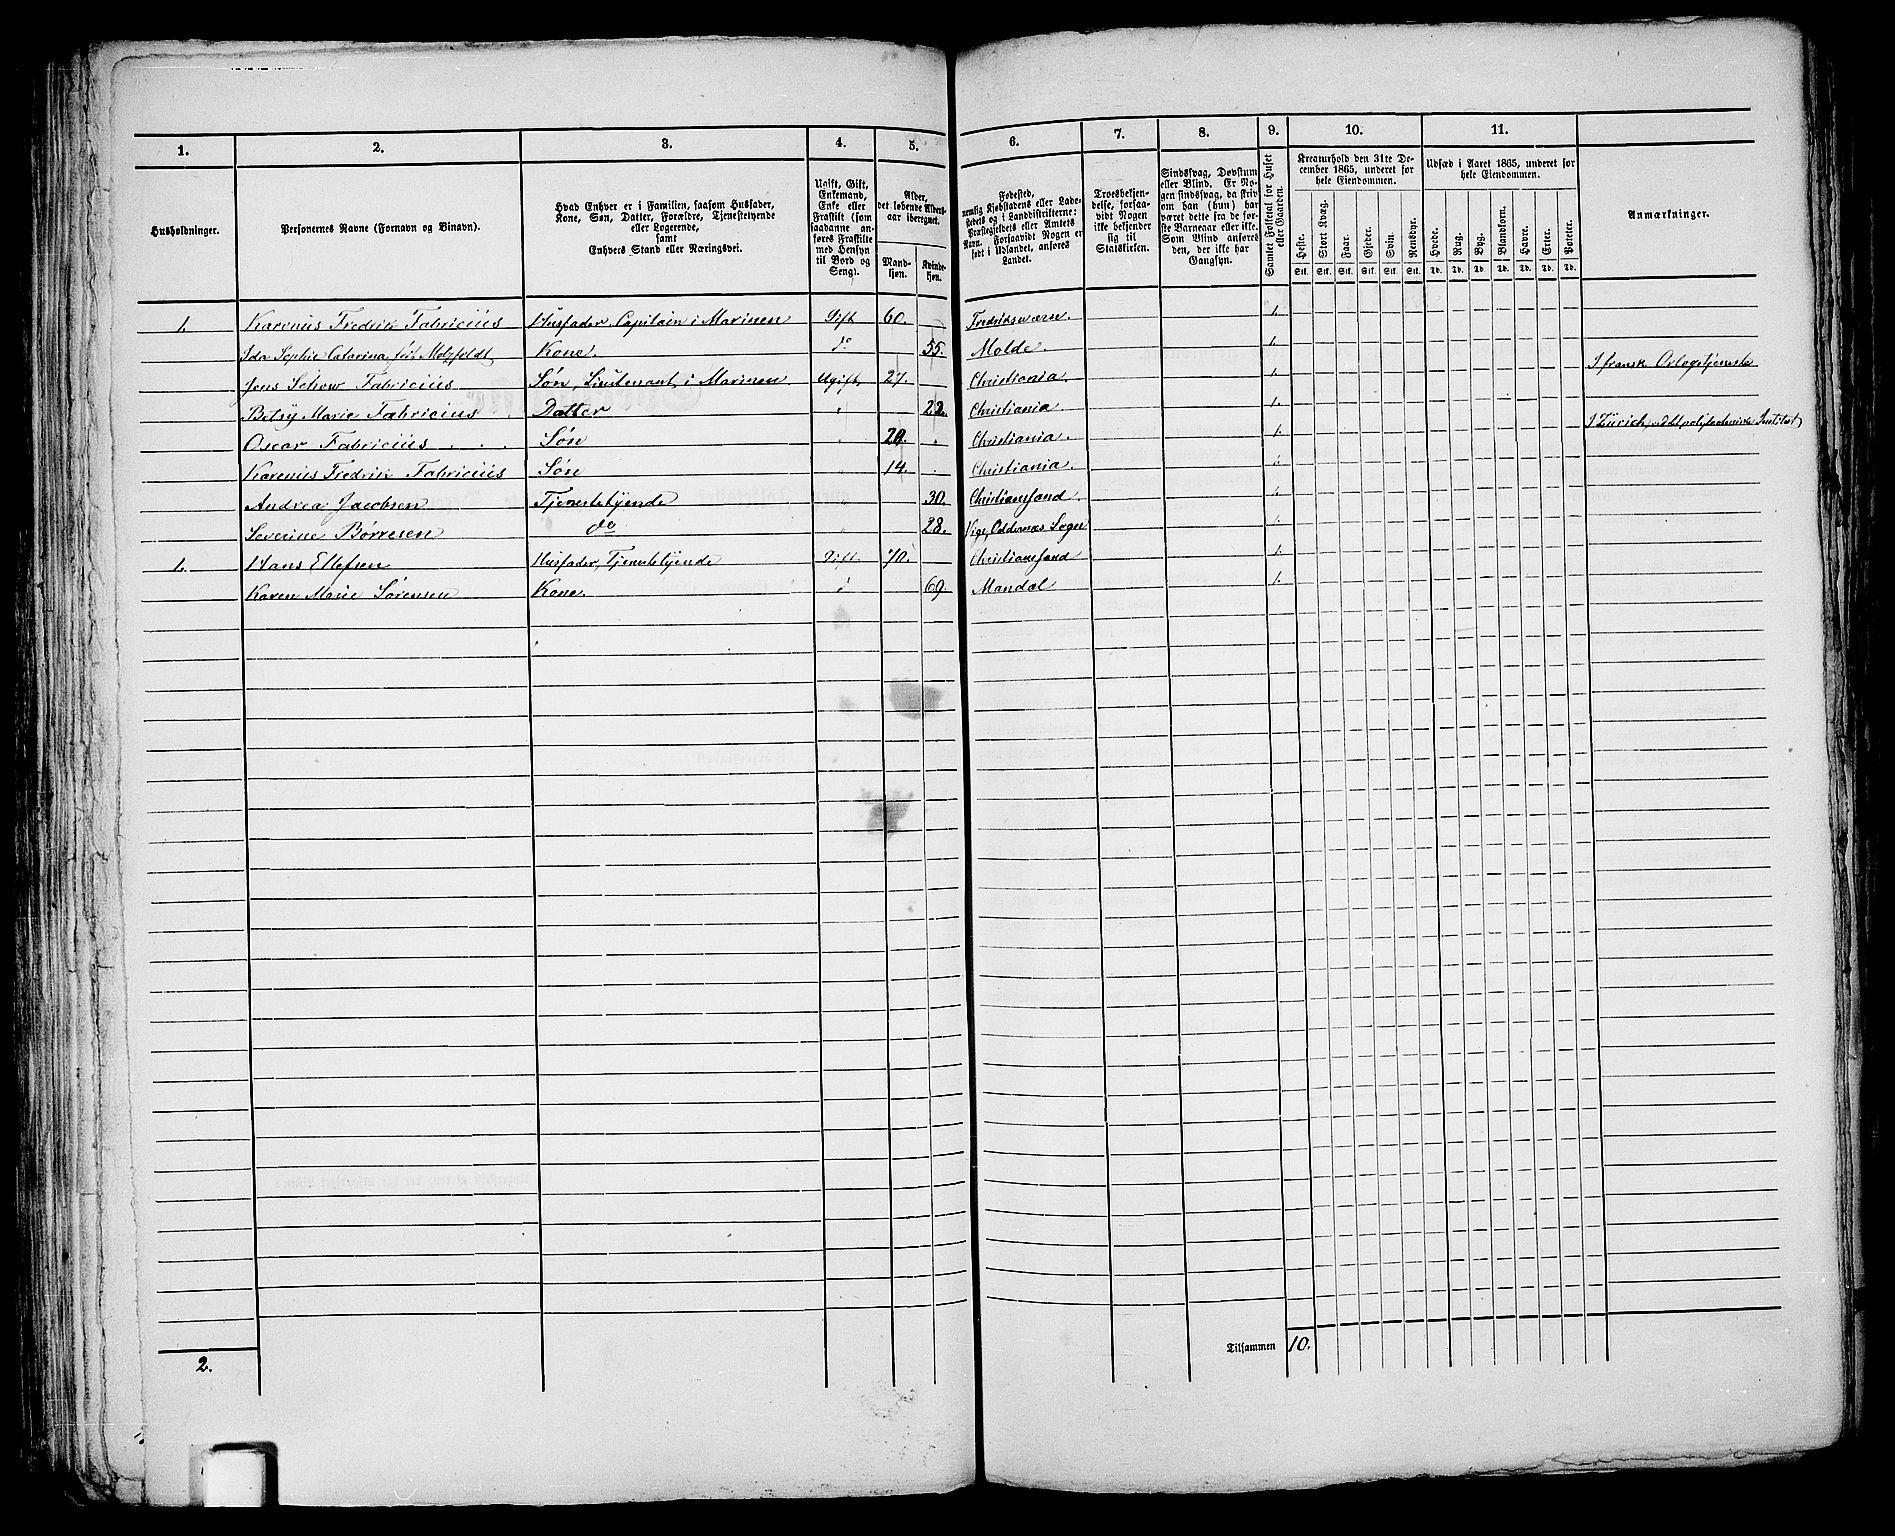 1. 2. 3. 4. 5. 6. 7. 8. 9. 10. 11.
Husholdninger.
Personernes Navne (Fornavn og Binavn).
Hvad Enhver er i Familien, saasom Husfader,
Kone, Søn, Datter, Forældre, Tjenestetyende
eller Logerende,
samt
Enhvers Stand eller Næringsvei.
Ugift, Gift,
Enkemand,
Enke eller
Fraskilt (som
saadanne an-
føres Fraskilte
med Hensyn
til Bord og
Seng).
Alder,
det løbende Alders-
aar iberegnet.
Mand-
kjøn.
Kvinde-
kjøn.
Fødested,
nemlig Kjøbstadens eller Lade-
stedets og i Landdistrikterne:
Præstegjeldets eller Amtets
Navn. Forsaavidt Nogen er
født i Udlandet, anføres
Landet.
Troesbekjen-
delse, forsaa-
vidt Nogen
ikke bekjender
sig til
Statskirken.
Sindssvag, Døvstum
eller Blind. Er No-
gen sindssvag, da skriv
om han (hun) har
været dette fra de før-
ste Barneaar eller ikke.
Som Blind anføres
den, der ikke har
Gangsyn.
Samlet Folketal for Huset
eller Gaarden.
Kreaturhold den 31te De-
cember 1865, underet for
hele Eiendommen.
Heste. Stort Kvæg. Faar. Gjeder. Svin. Rensdyr.
Stk. Stk. Stk. Stk. Stk. Stk.
Udsæd i Aaret 1865, underet for
hele Eiendommen.
Hvede. Rug. Byg. Blandkorn. Havre. Erter. Poteter.
Td. Td. Td. Td. Td. Td. Td.
Anmærkninger.
1. Karenius Fredrik Fabricius Husfader, Capitain i Marinen Gift 60. Fredriksværn. 1.
Ida Sophie Catarina, født Motzfeldt Kone. do 55. Molde. 1.
Jens Schow Fabricius Søn, Lieutenant i Marinen. Ugift 27. Christiania. 1. I fransk Orlogstjeneste
Betsy Marie Fabricius Datter " 22. Christiania. 1.
Oscar Fabricius Søn " 20. " Christiania. 1. I Zürich, ved det polytechniske Institut
Karenius Fredrik Fabricius Søn " 14. Christiania. 1.
Andrea Jacobsen Tjenestetyende " 30. Christianssand. 1.
Severine Børresen do " 28. Vige, Oddernæs Sogn 1.
1. Hans Ellefsen Husfader, Tjenestetyende Gift 70. Christianssand 1.
Karen Marie Sørensen Kone. " 69. Mandal 1.
2.
Tilsammen 10.